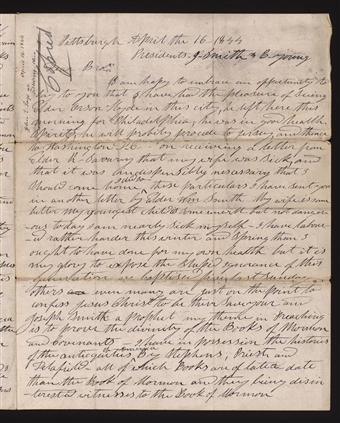 Pittsburgh April the 16 - 1844
Presidents J Smith & B young
Bros.
I am happy to embrace an oppertunity to
to you that I have had the pleasure of seeing
Elder Orson Hyde in this city, he left here this
morning for Philadelphia, he was in good health
& spirits, he will probily procede to jersey and thence
to Washington D.C on receiving a letter from
Elder that my wife was Sick, and
that it was indispensibly necessary that I
Should come home, these particulars I have sent you
in another letter by Elder Wm Smith My wife is some
better my youngest child is but not dangerous
ous today I am nearly Sick myself - I have labour
ed rather harder this winter and Spring than I
ought to have done for my own health but it is
my glory to expose the ignorance of this
generation I baptised five last Sunday
there are even many are just on the point to
confess jesus Christ to be their Saviour and
Joseph Smith a Prophet my theme in Preaching
is to prove the divinity of the Books of Mormon
and Covenants - I have in possession the histories
of the antiquities of america By Stephens, Priest and
Delafield - all of which Books are of later date
than the Book of Mormon and they being disin
terested witnesses to the Book of Mormon